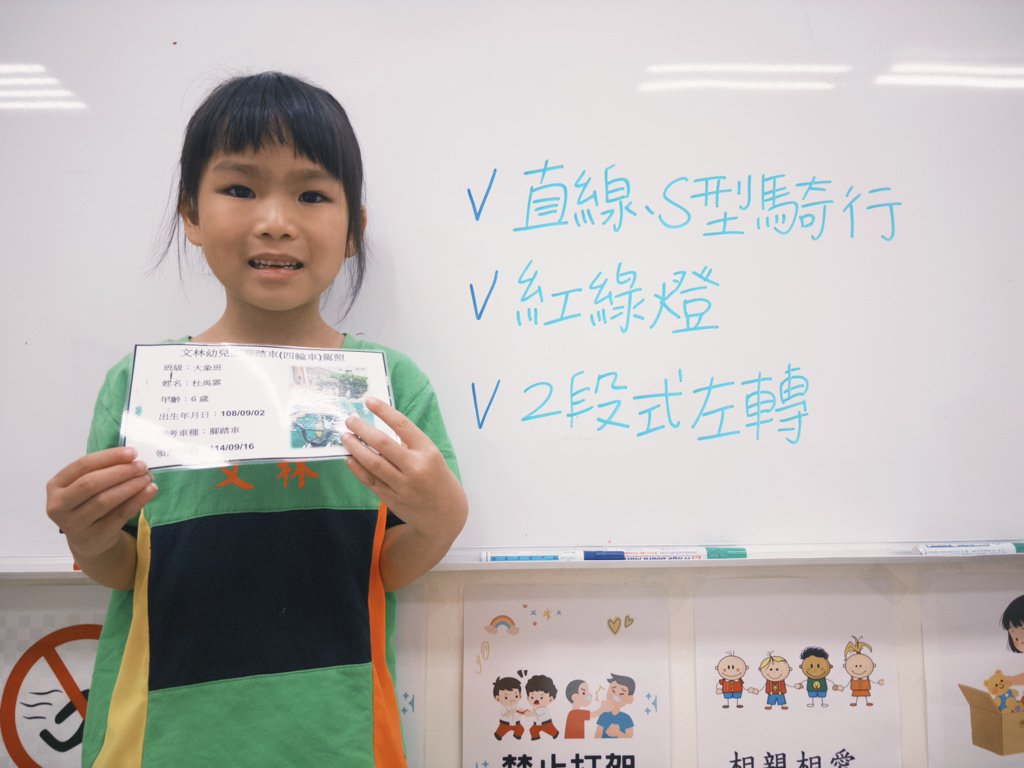 ✓ 直線、S型騎行
✓ 紅綠燈
✓ 2段式左轉
文林幼兒 腳踏車(四輪車)駕照
班級：大象班
姓名：杜禹霏
年齡：6 歲
出生年月日：108/09/02
考車種：腳踏車
領 14/09/16
文林
禁止打架
相親相愛